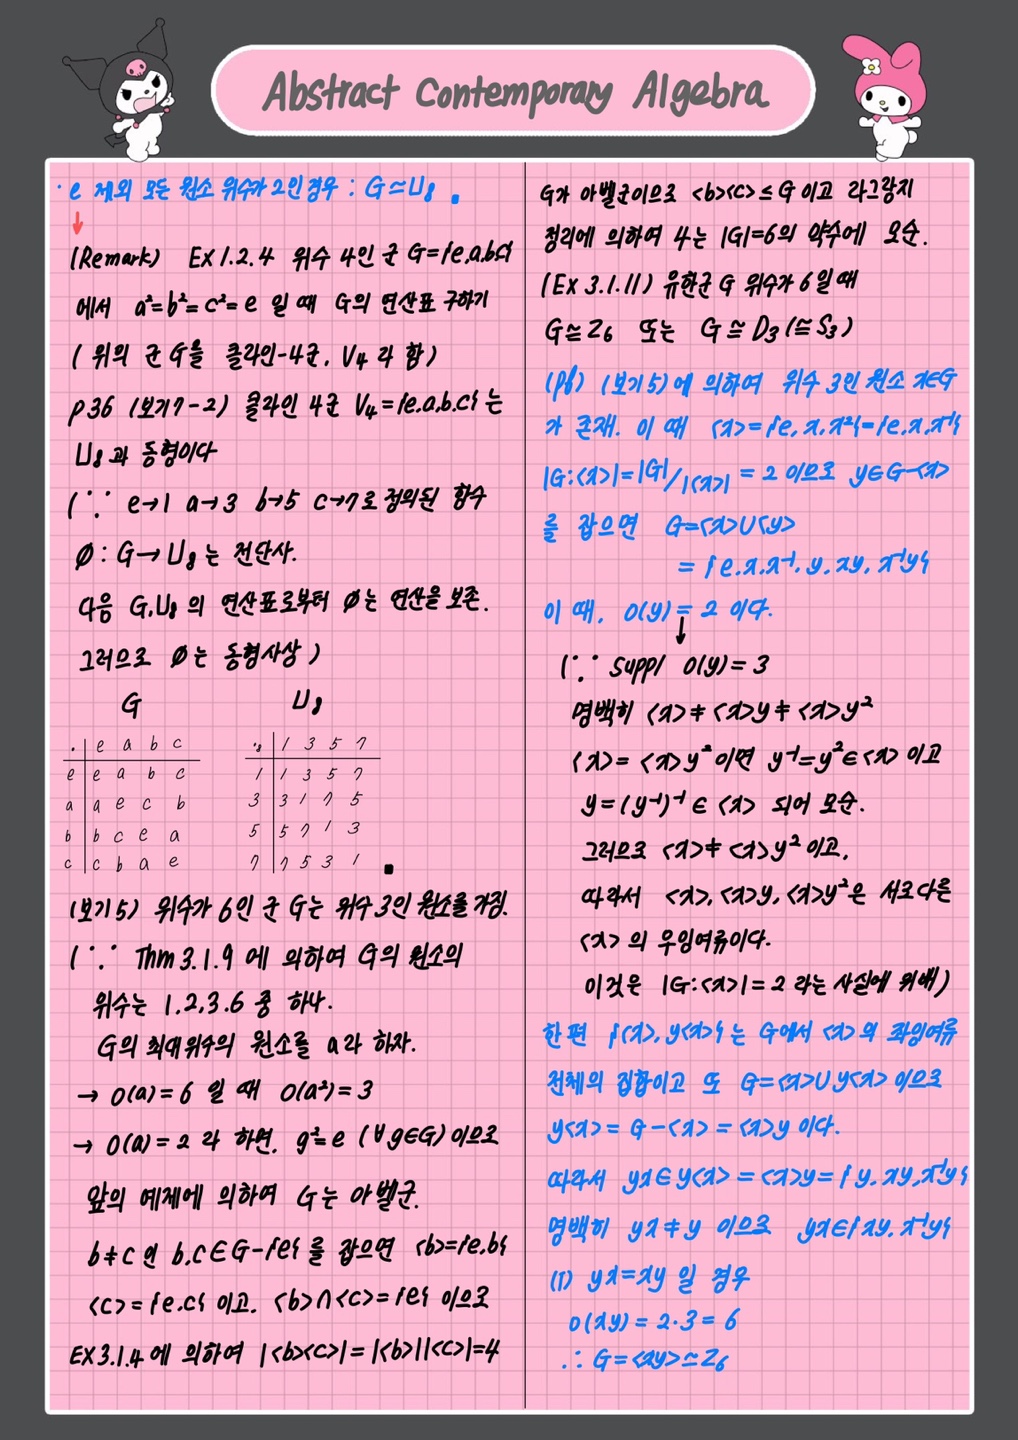 Abstract Contemporary Algebra
· e 제외 모든 원소 위수가 2인 경우 : G ≃ U₈ .
↓
(Remark) EX 1.2.4 위수 4인 군 G={e,a,b,c}
에서 a²=b²=c²=e 일 때 G의 연산표 구하기
( 위의 군 G을 클라인-4군, V₄ 라 함 )
p36 (보기7-2) 클라인 4군 V₄={e,a,b,c}는
U₈과 동형이다
(∵ e→1 a→3 b→5 c→7로 정의된 함수
Ø : G→U₈는 전단사.
다음 G,U₈의 연산표로부터 Ø는 연산을 보존.
그러므로 Ø는 동형사상 )
G U₈
· e a b c
e e a b c
a a e c b
b b c e a
c c b a e
·₈ 1 3 5 7
1 1 3 5 7
3 3 1 7 5
5 5 7 1 3
7 7 5 3 1
(보기5) 위수가 6인 군 G는 위수 3인 원소를 가짐.
(∵ Thm 3.1.9 에 의하여 G의 원소의
위수는 1,2,3,6 중 하나.
G의 최대위수의 원소를 a라 하자.
→ O(a)=6 일 때 O(a²)=3
→ O(a)=2 라 하면, g²=e (∀g∈G)이므로
앞의 예제에 의하여 G는 아벨군.
b≠c 인 b,c∈G-{e}를 잡으면 <b>={e,b}
<c>={e,c}이고, <b>∩<c>={e}이므로
EX 3.1.4에 의하여 |<b><c>|=|<b>||<c>|=4
G가 아벨군이므로 <b><c>≤G이고 라그랑지
정리에 의하여 4는 |G|=6의 약수에 모순.
(Ex 3.1.11) 유한군 G 위수가 6일 때
G≅Z₆ 또는 G≅D₃(≅S₃)
(pf) (보기5)에 의하여 위수 3인 원소 x∈G
가 존재. 이 때 <x>={e,x,x²}={e,x,x⁻¹}
|G:<x>|=|G|/|<x>| = 2 이므로 y∈G-<x>
를 잡으면 G=<x>∪<y>
= {e,x,x⁻¹,y,xy,x⁻¹y}
이 때, O(y)=2 이다.
↓
(∵ suppl O(y)=3
명백히 <x>≠<x>y≠<x>y²
<x>=<x>y²이면 y⁻¹=y²∈<x>이고
y=(y⁻¹)⁻¹∈<x> 되어 모순.
그러므로 <x>≠<x>y²이고,
따라서 <x>,<x>y,<x>y²은 서로 다른
<x>의 우잉여류이다.
이것은 |G:<x>|=2 라는 사실에 위배)
한편 {<x>,y<x>}는 G에서 <x>의 좌잉여류
전체의 집합이고 또 G=<x>∪y<x>이므로
y<x>=G-<x>=<x>y 이다.
따라서 yx∈y<x>=<x>y={y,xy,x⁻¹y}
명백히 yx≠y 이므로 yx∈{xy,x⁻¹y}
(1) yx=xy 일 경우
O(xy)=2·3=6
∴ G=<xy>≃Z₆